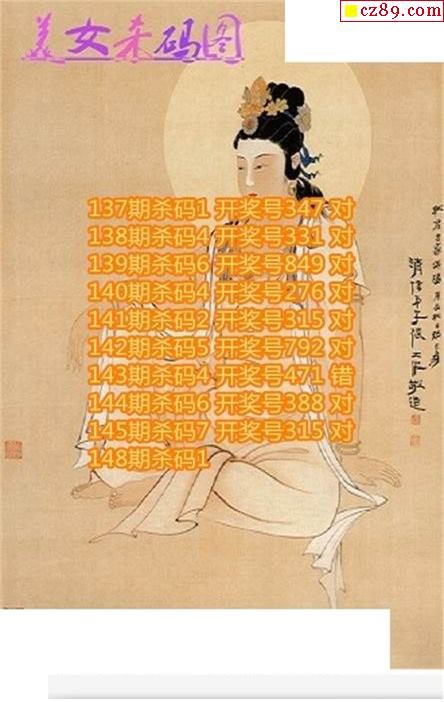 cz89.com
美女杀码图
137期杀码1 开奖号347 对
138期杀码4 开奖号331 对
139期杀码6 开奖号849 对
140期杀码4 开奖号276 对
141期杀码2 开奖号315 对
142期杀码5 开奖号792 对
143期杀码4 开奖号471 错
144期杀码6 开奖号388 对
145期杀码7 开奖号315 对
148期杀码1